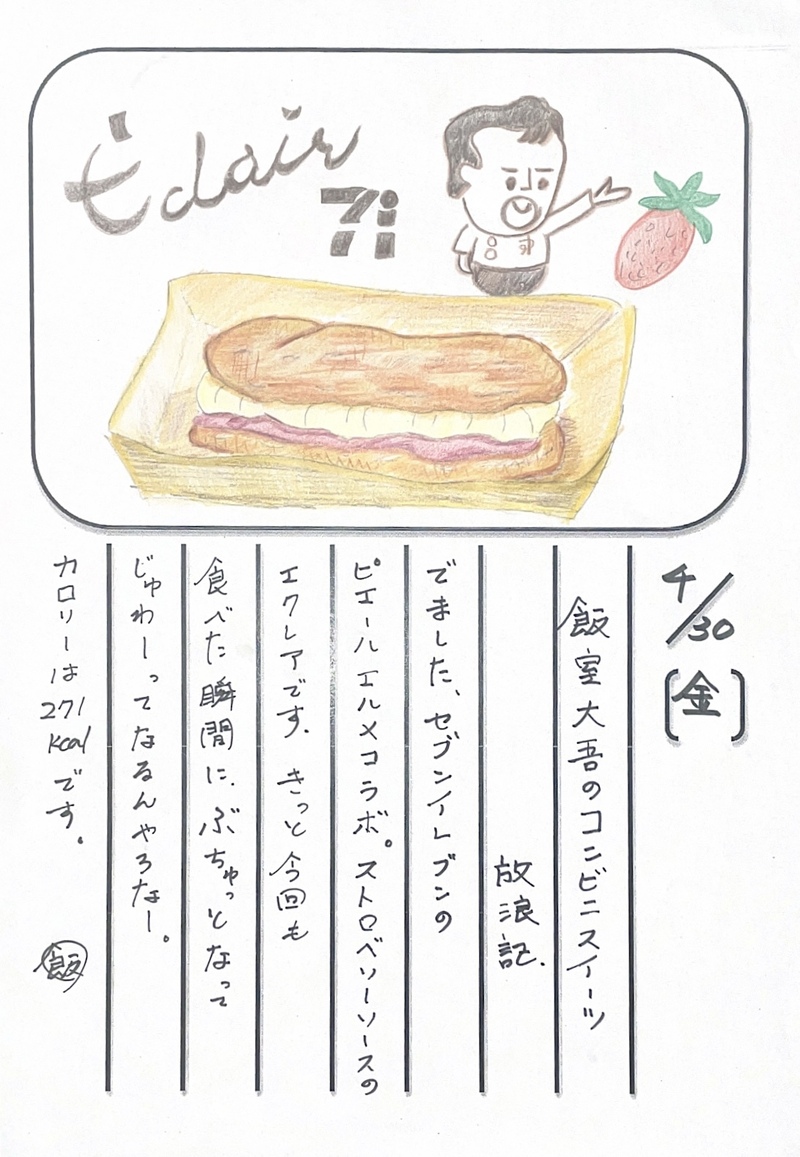 Éclair
7i
4/30(金)
飯室大吾のコンビニスイーツ
放浪記.
でました、セブンイレブンの
ピエールエルメコラボ。ストロベリーソースの
エクレアです。きっと今回も
食べた瞬間に、ぶちゅっとなって
じゅわーってなるんやろなー。
カロリーは271kcalです。
飯